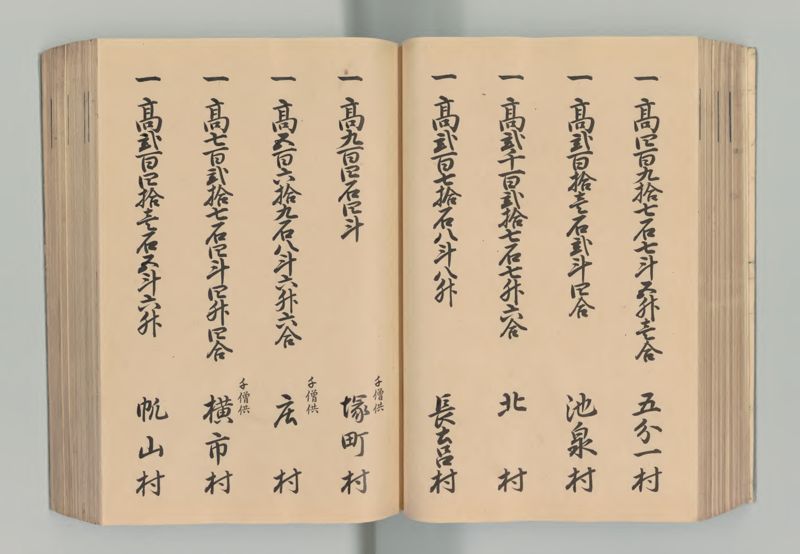 一 高四百九拾七石七斗五升壱合 五分一村
一 高弐百拾壱石弐斗四合 池泉村
一 高弐千百弐拾七石七升六合 北村
一 高弐百七拾石八斗八升 長古呂村
一 高九百四石四斗 千僧供 塚町村
一 高五百六拾九石八斗六升六合 千僧供 庄村
一 高七百弐拾七石四斗四升四合 千僧供 横市村
一 高弐百四拾壱石五斗六升 帆山村